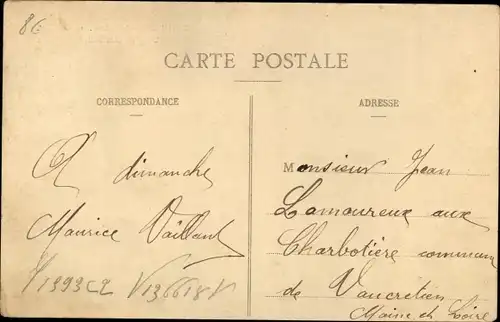 8€
CARTE POSTALE
CORRESPONDANCE
ADRESSE
A dimanche
Maurice Vaillant
Y1393C2 V136618V
Monsieur Jean
Lamoureux aux
Charbotière commune
de Vaucretien
Maine et Loire